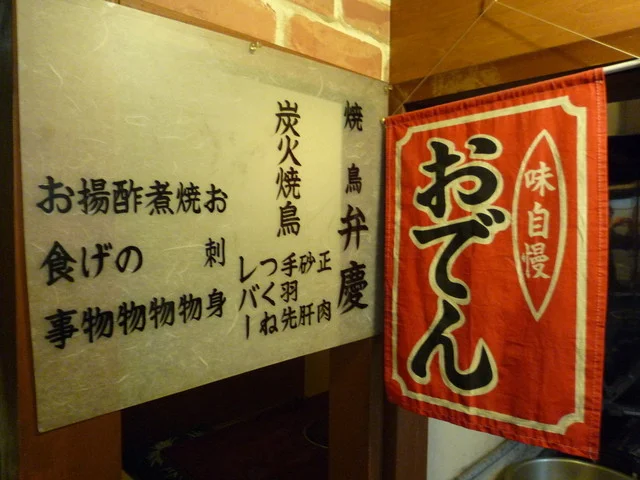 焼鳥 弁慶
炭火焼鳥
正肉
砂肝
手羽先
つくね
レバー
お刺身
焼物
煮物
酢の物
揚げ物
お食事
味自慢
おでん